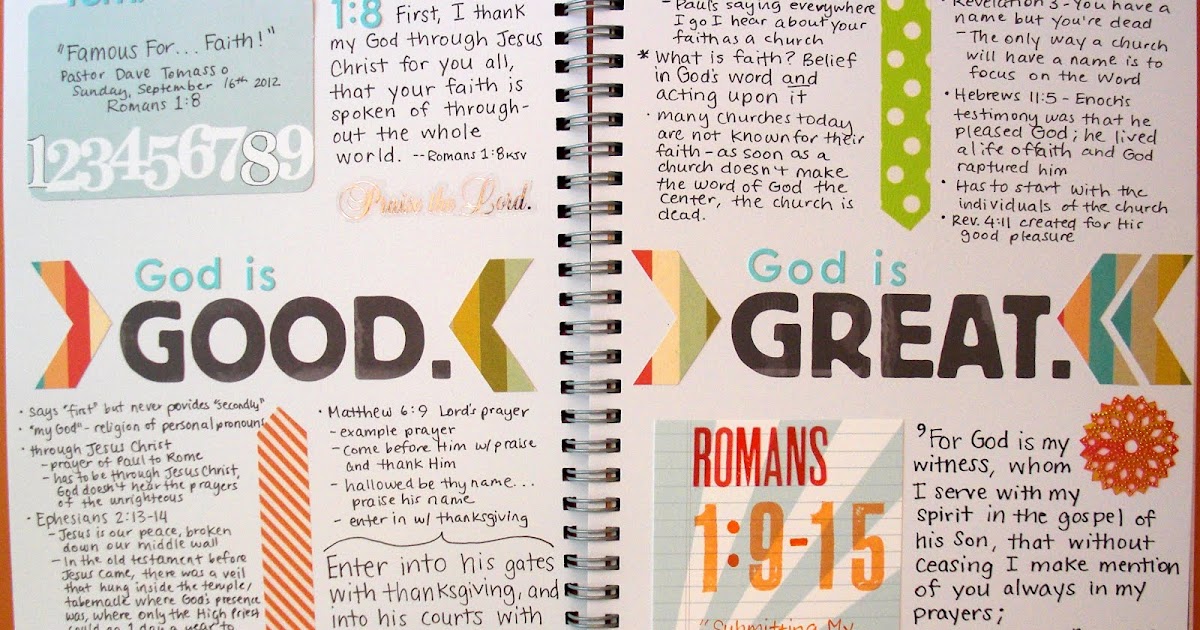 "Famous For... Faith!"
Pastor Dave Tomasso
Sunday, September 16th 2012
Romans 1:8
123456789
1:8 First, I thank
my God through Jesus
Christ for you all,
that your faith is
spoken of through-
out the whole
world. -- Romans 1:8 KJV
Praise the Lord.
God is
GOOD.
• says "first" but never povides "secondly"
• "my God" - religion of personal pronouns
• through Jesus Christ
- prayer of Paul to Rome
- has to be through Jesus Christ,
God doesn't hear the prayers
of the unrighteous
• Ephesians 2:13-14
- Jesus is our peace, broken
down our middle wall
- In the old testament before
Jesus came, there was a veil
that hung inside the temple/
tabernacle where God's presence
was, where only the High Priest
could go 1 day a year to
• Matthew 6:9 Lord's prayer
- example prayer
- come before Him w/ praise
and thank Him
- hallowed be thy name...
praise his name
- enter in w/ thanksgiving
Enter into his gates
with thanksgiving, and
into his courts with
- Paul's saying everywhere
I go I hear about your
faith as a church
* What is faith? Belief
in God's word and
acting upon it
• many churches today
are not known for their
faith - as soon as a
church doesn't make
the word of God the
center, the church is
dead.
• Revelation 3 - You have a
name but you're dead
- The only way a church
will have a name is to
focus on the Word
• Hebrews 11:5 - Enoch's
testimony was that he
pleased God; he lived
a life of faith and God
raptured him
• Has to start with the
individuals of the church
• Rev. 4:11 created for His
good pleasure
God is
GREAT.
ROMANS
1:9-15
"Submitting My
9 For God is my
witness, whom
I serve with my
spirit in the gospel of
his Son, that without
ceasing I make mention
of you always in my
prayers;